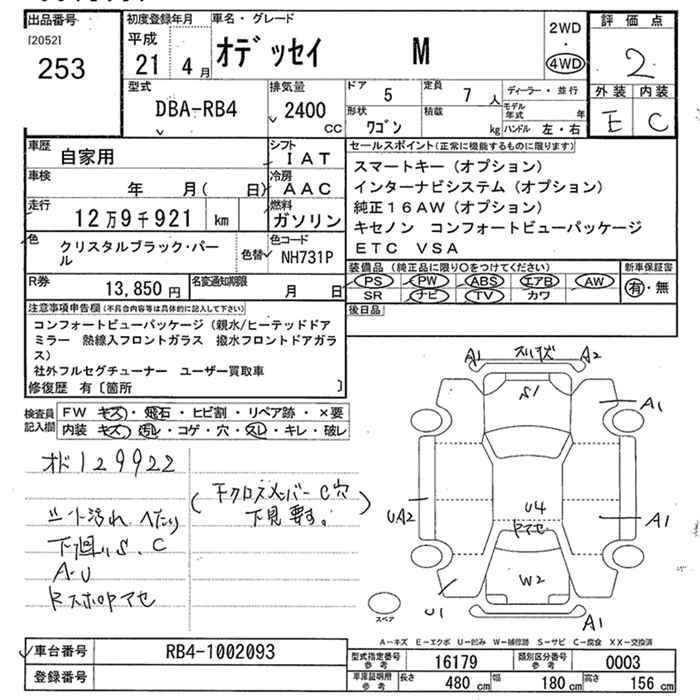 出品番号
[2052]
253
初度登録年月
平成
21年 4月
車名・グレード
オデッセイ M
2WD
・
4WD
評価点
2
外装 内装
E C
型式
DBA-RB4
排気量
2400
CC
ドア 5
定員 7人
形状 ワゴン
積載 kg
ディーラー・並行
モデル年式 年
ハンドル 左・右
車歴
自家用
シフト
IAT
車検
年 月( 日)
冷房
AAC
走行
12万9千921 km
燃料
ガソリン
色
クリスタルブラック・パール
色替
色コード
NH731P
R券
13,850円
名変通知期限
月 日
セールスポイント(正常に機能するものに限ります)
スマートキー(オプション)
インターナビシステム(オプション)
純正16AW(オプション)
キセノン コンフォートビューパッケージ
ETC VSA
装備品(純正品に限り○をつけてください)
PS PW ABS エアB AW
SR ナビ TV カワ
新車保証書
有・無
後日品
注意事項申告欄(不具合内容等は具体的に記入して下さい)
コンフォートビューパッケージ(親水/ヒーテッドドア
ミラー 熱線入フロントガラス 撥水フロントドアガラ
ス)
社外フルセグチューナー ユーザー買取車
修復歴 有〔箇所 〕
検査員
記入欄
FW キズ・飛石・ヒビ割・リペア跡・×要
内装 キズ・汚れ・コゲ・穴・スレ・キレ・破レ
オド129922
シート汚れ へたり
下廻りS.C
A・U
(下クロスメンバーC穴
下見要す。)
A1 スリキズ A2
S1
A1
UA2
U4
A1
W2
U1
A1
スペア
A-キズ E-エクボ U-凹み W-補修跡 S-サビ C-腐食 XX-交換済
車台番号
RB4-1002093
登録番号
型式指定番号
参考
16179
類別区分番号
参考
0003
車庫証明用
参考
長さ 480 cm
幅 180 cm
高さ 156 cm